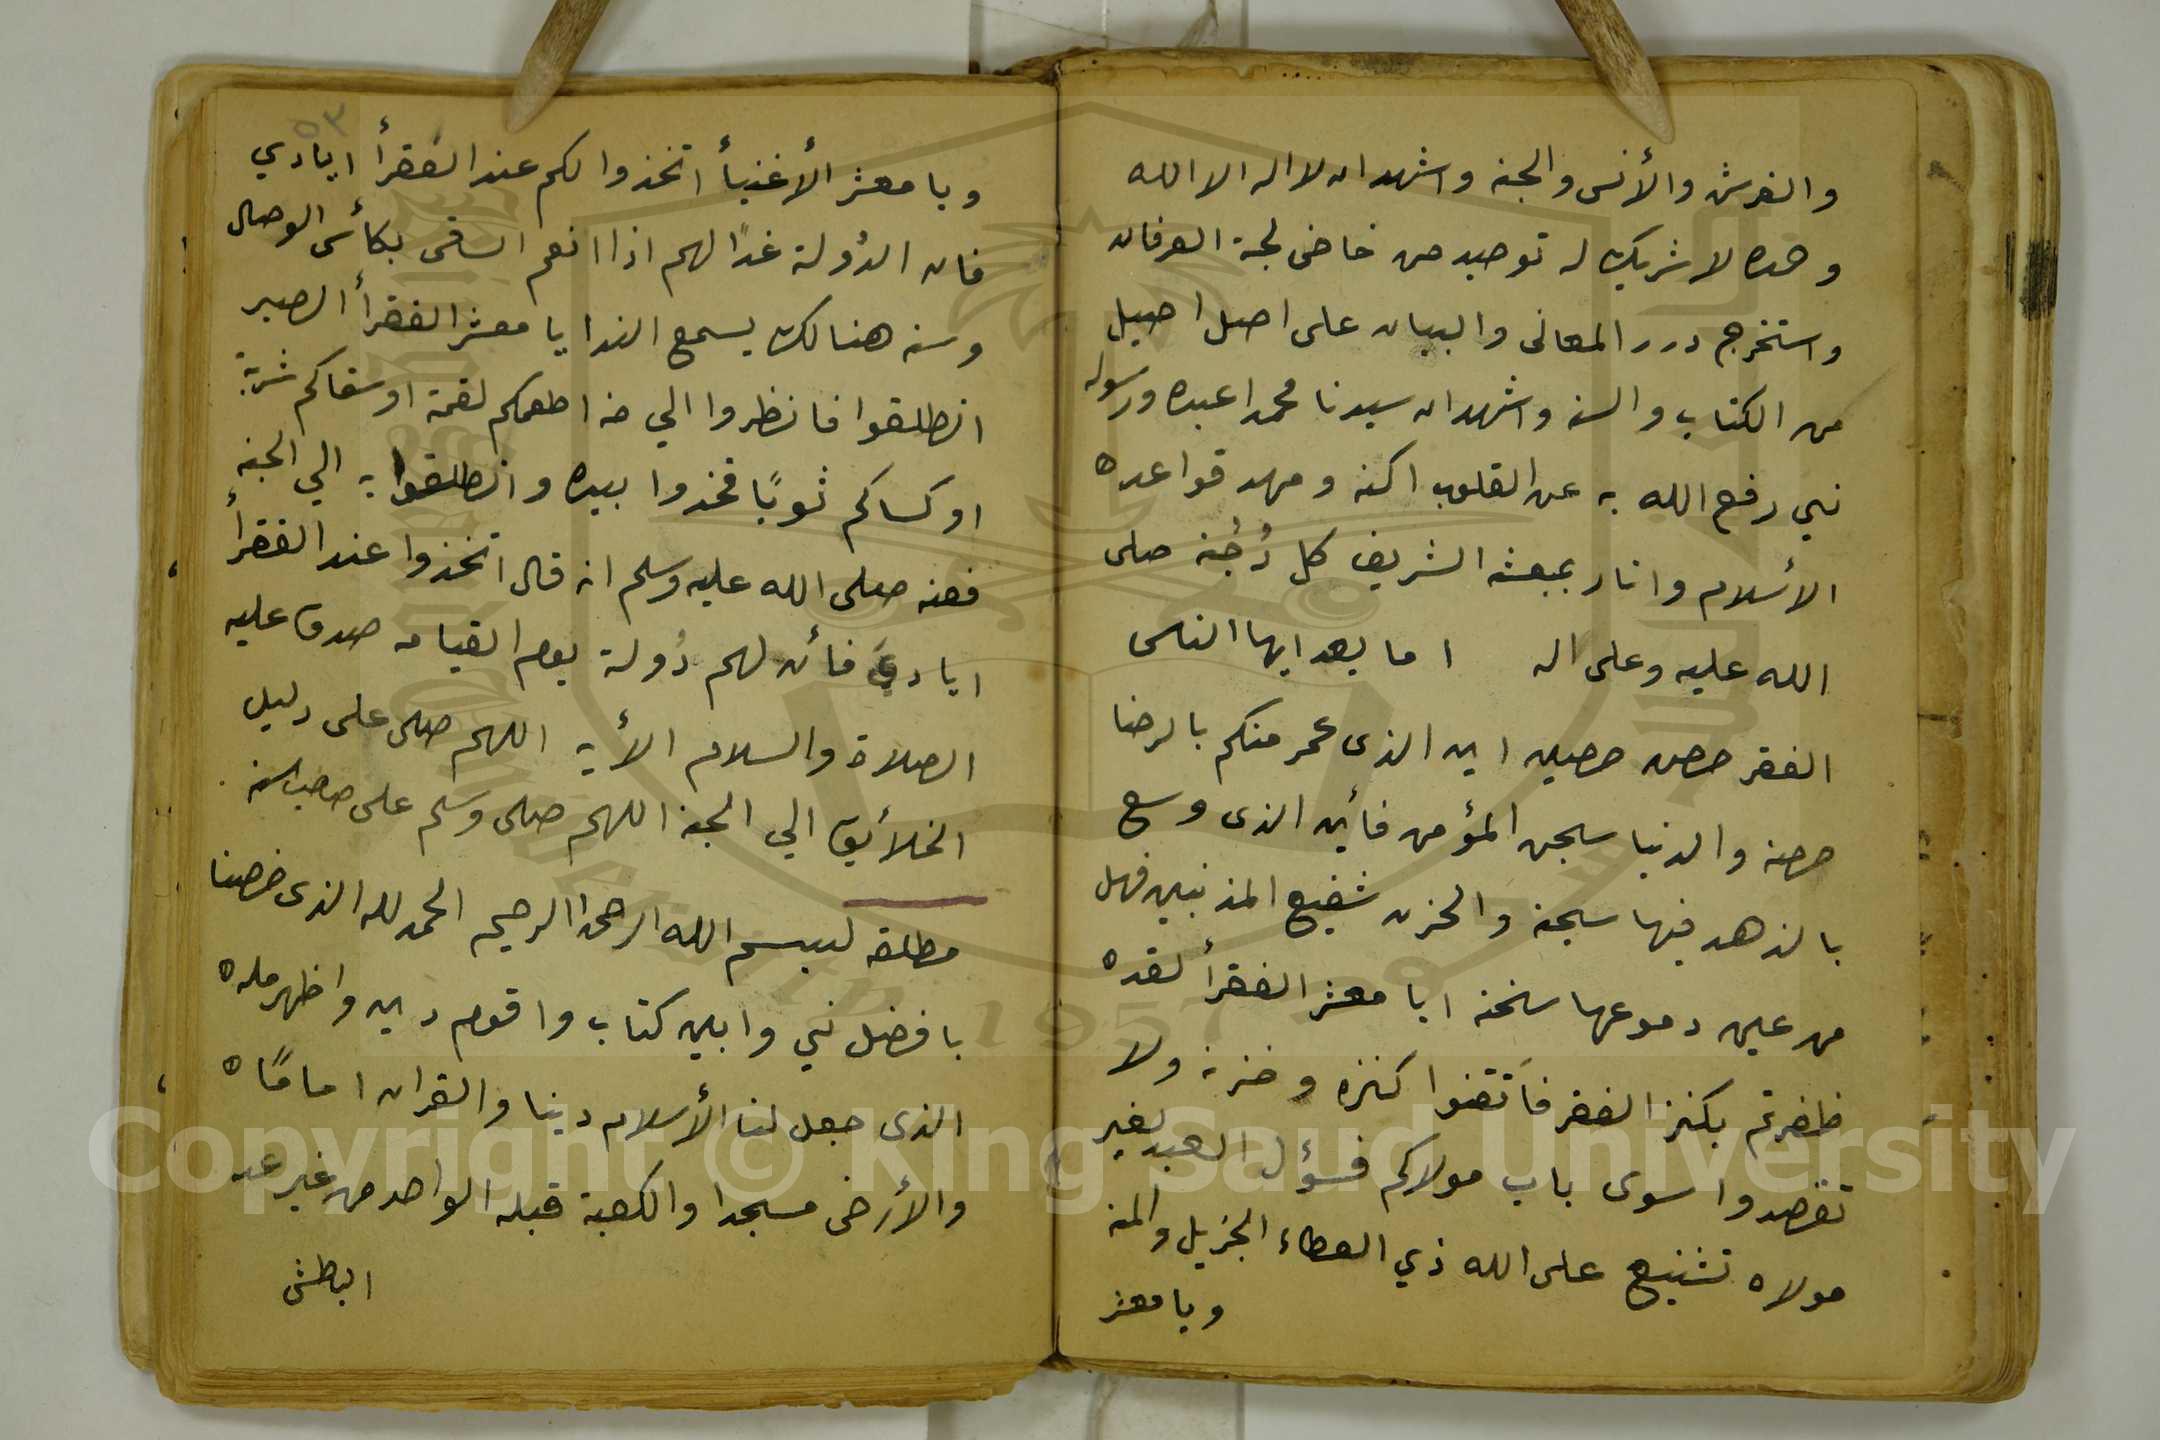 والفرش والأنس والجنه واشهد ان لا اله الا الله
وحده لا شريك له توحيد من خاض لجة العرفان
واستخرج درر المعانى والبيان على اصل اصيل
من الكتاب والسنه واشهد ان سيدنا محمدا عبده ورسوله
نبي رفع الله به عن القلوب اكنه ومهد قواعده
الأسلام وانار بمبعثه الشريف كل دُجُنه صلى
الله عليه وعلى اله اما بعد ايها الناس
الفقر حصن حصين اين الذى عمر منكم بالرضا
حصنه والدنيا سجن المؤمن فأين الذى وسع
بالزهد فيها سجنه والحزن شفيع المذنبين فهل
من عين دموعها سخنه ايا معشر الفقرأ لقده
ظفرتم بكنز الفقر فاَتقنوا كنزه وخزنه ولا
تقصدوا سوى باب مولاكم فسؤل العبد لغير
مولاه تشنيع على الله ذي العطاء الجزيل والمنه
ويا معشر
٥٣
ويا معشر الأغنيأ اتخذوا لكم عند الفقرأ ايادي
فان الدُولة غدًا لهم اذا انعم الساقى بكأس الوصال
ومنه هنالك يسمع الندا يا معشر الفقرأ الصبر
انطلقوا فانظروا الي من اطعمكم لقمة او سقاكم شربةً
او كساكم ثوبًا فخذوا بيده وانطلقوا به الي الجنه
فعنه صلى الله عليه وسلم انه قال اتخذوا عند الفقرأ
ايادي فأن لهم دُولة يوم القيامه صدق عليه
الصلاة والسلام الأيه اللهم صلى على دليل
الخلأيق الي الجنه اللهم صلى وسلم على صاحب السنه
مطلقه لبسم الله الرحمن الرحيم الحمد لله الذى خصنا
بافضل نبي وابين كتاب واقوم دين واظهر مله ه
الذى جعل لنا الأسلام دينا والقران امامًا ه
والأرض مسجدا والكعبة قبله الواحد من غير عد
البطش
Copyright © King Saud University
1957